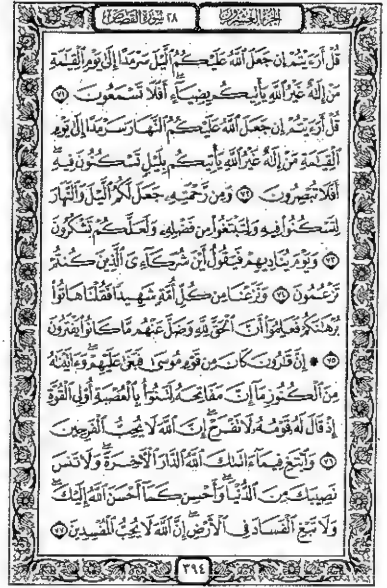 الجزء العشرون ٢٨ سورة القصص
قُلْ أَرَءَيْتُمْ إِن جَعَلَ ٱللَّهُ عَلَيْكُمُ ٱلَّيْلَ سَرْمَدًا إِلَىٰ يَوْمِ ٱلْقِيَٰمَةِ
مَنْ إِلَٰهٌ غَيْرُ ٱللَّهِ يَأْتِيكُم بِضِيَآءٍ ۖ أَفَلَا تَسْمَعُونَ ٧١
قُلْ أَرَءَيْتُمْ إِن جَعَلَ ٱللَّهُ عَلَيْكُمُ ٱلنَّهَارَ سَرْمَدًا إِلَىٰ يَوْمِ
ٱلْقِيَٰمَةِ مَنْ إِلَٰهٌ غَيْرُ ٱللَّهِ يَأْتِيكُم بِلَيْلٍ تَسْكُنُونَ فِيهِ ۖ
أَفَلَا تُبْصِرُونَ ٧٢ وَمِن رَّحْمَتِهِۦ جَعَلَ لَكُمُ ٱلَّيْلَ وَٱلنَّهَارَ
لِتَسْكُنُوا۟ فِيهِ وَلِتَبْتَغُوا۟ مِن فَضْلِهِۦ وَلَعَلَّكُمْ تَشْكُرُونَ
٧٣ وَيَوْمَ يُنَادِيهِمْ فَيَقُولُ أَيْنَ شُرَكَآءِىَ ٱلَّذِينَ كُنتُمْ
تَزْعُمُونَ ٧٤ وَنَزَعْنَا مِن كُلِّ أُمَّةٍ شَهِيدًا فَقُلْنَا هَاتُوا۟
بُرْهَٰنَكُمْ فَعَلِمُوٓا۟ أَنَّ ٱلْحَقَّ لِلَّهِ وَضَلَّ عَنْهُم مَّا كَانُوا۟ يَفْتَرُونَ
٧٥ * إِنَّ قَٰرُونَ كَانَ مِن قَوْمِ مُوسَىٰ فَبَغَىٰ عَلَيْهِمْ ۖ وَءَاتَيْنَٰهُ
مِنَ ٱلْكُنُوزِ مَآ إِنَّ مَفَاتِحَهُۥ لَتَنُوٓأُ بِٱلْعُصْبَةِ أُو۟لِى ٱلْقُوَّةِ
إِذْ قَالَ لَهُۥ قَوْمُهُۥ لَا تَفْرَحْ ۖ إِنَّ ٱللَّهَ لَا يُحِبُّ ٱلْفَرِحِينَ
٧٦ وَٱبْتَغِ فِيمَآ ءَاتَىٰكَ ٱللَّهُ ٱلدَّارَ ٱلْءَاخِرَةَ ۖ وَلَا تَنسَ
نَصِيبَكَ مِنَ ٱلدُّنْيَا ۖ وَأَحْسِن كَمَآ أَحْسَنَ ٱللَّهُ إِلَيْكَ ۖ
وَلَا تَبْغِ ٱلْفَسَادَ فِى ٱلْأَرْضِ ۖ إِنَّ ٱللَّهَ لَا يُحِبُّ ٱلْمُفْسِدِينَ ٧٧
٣٩٤